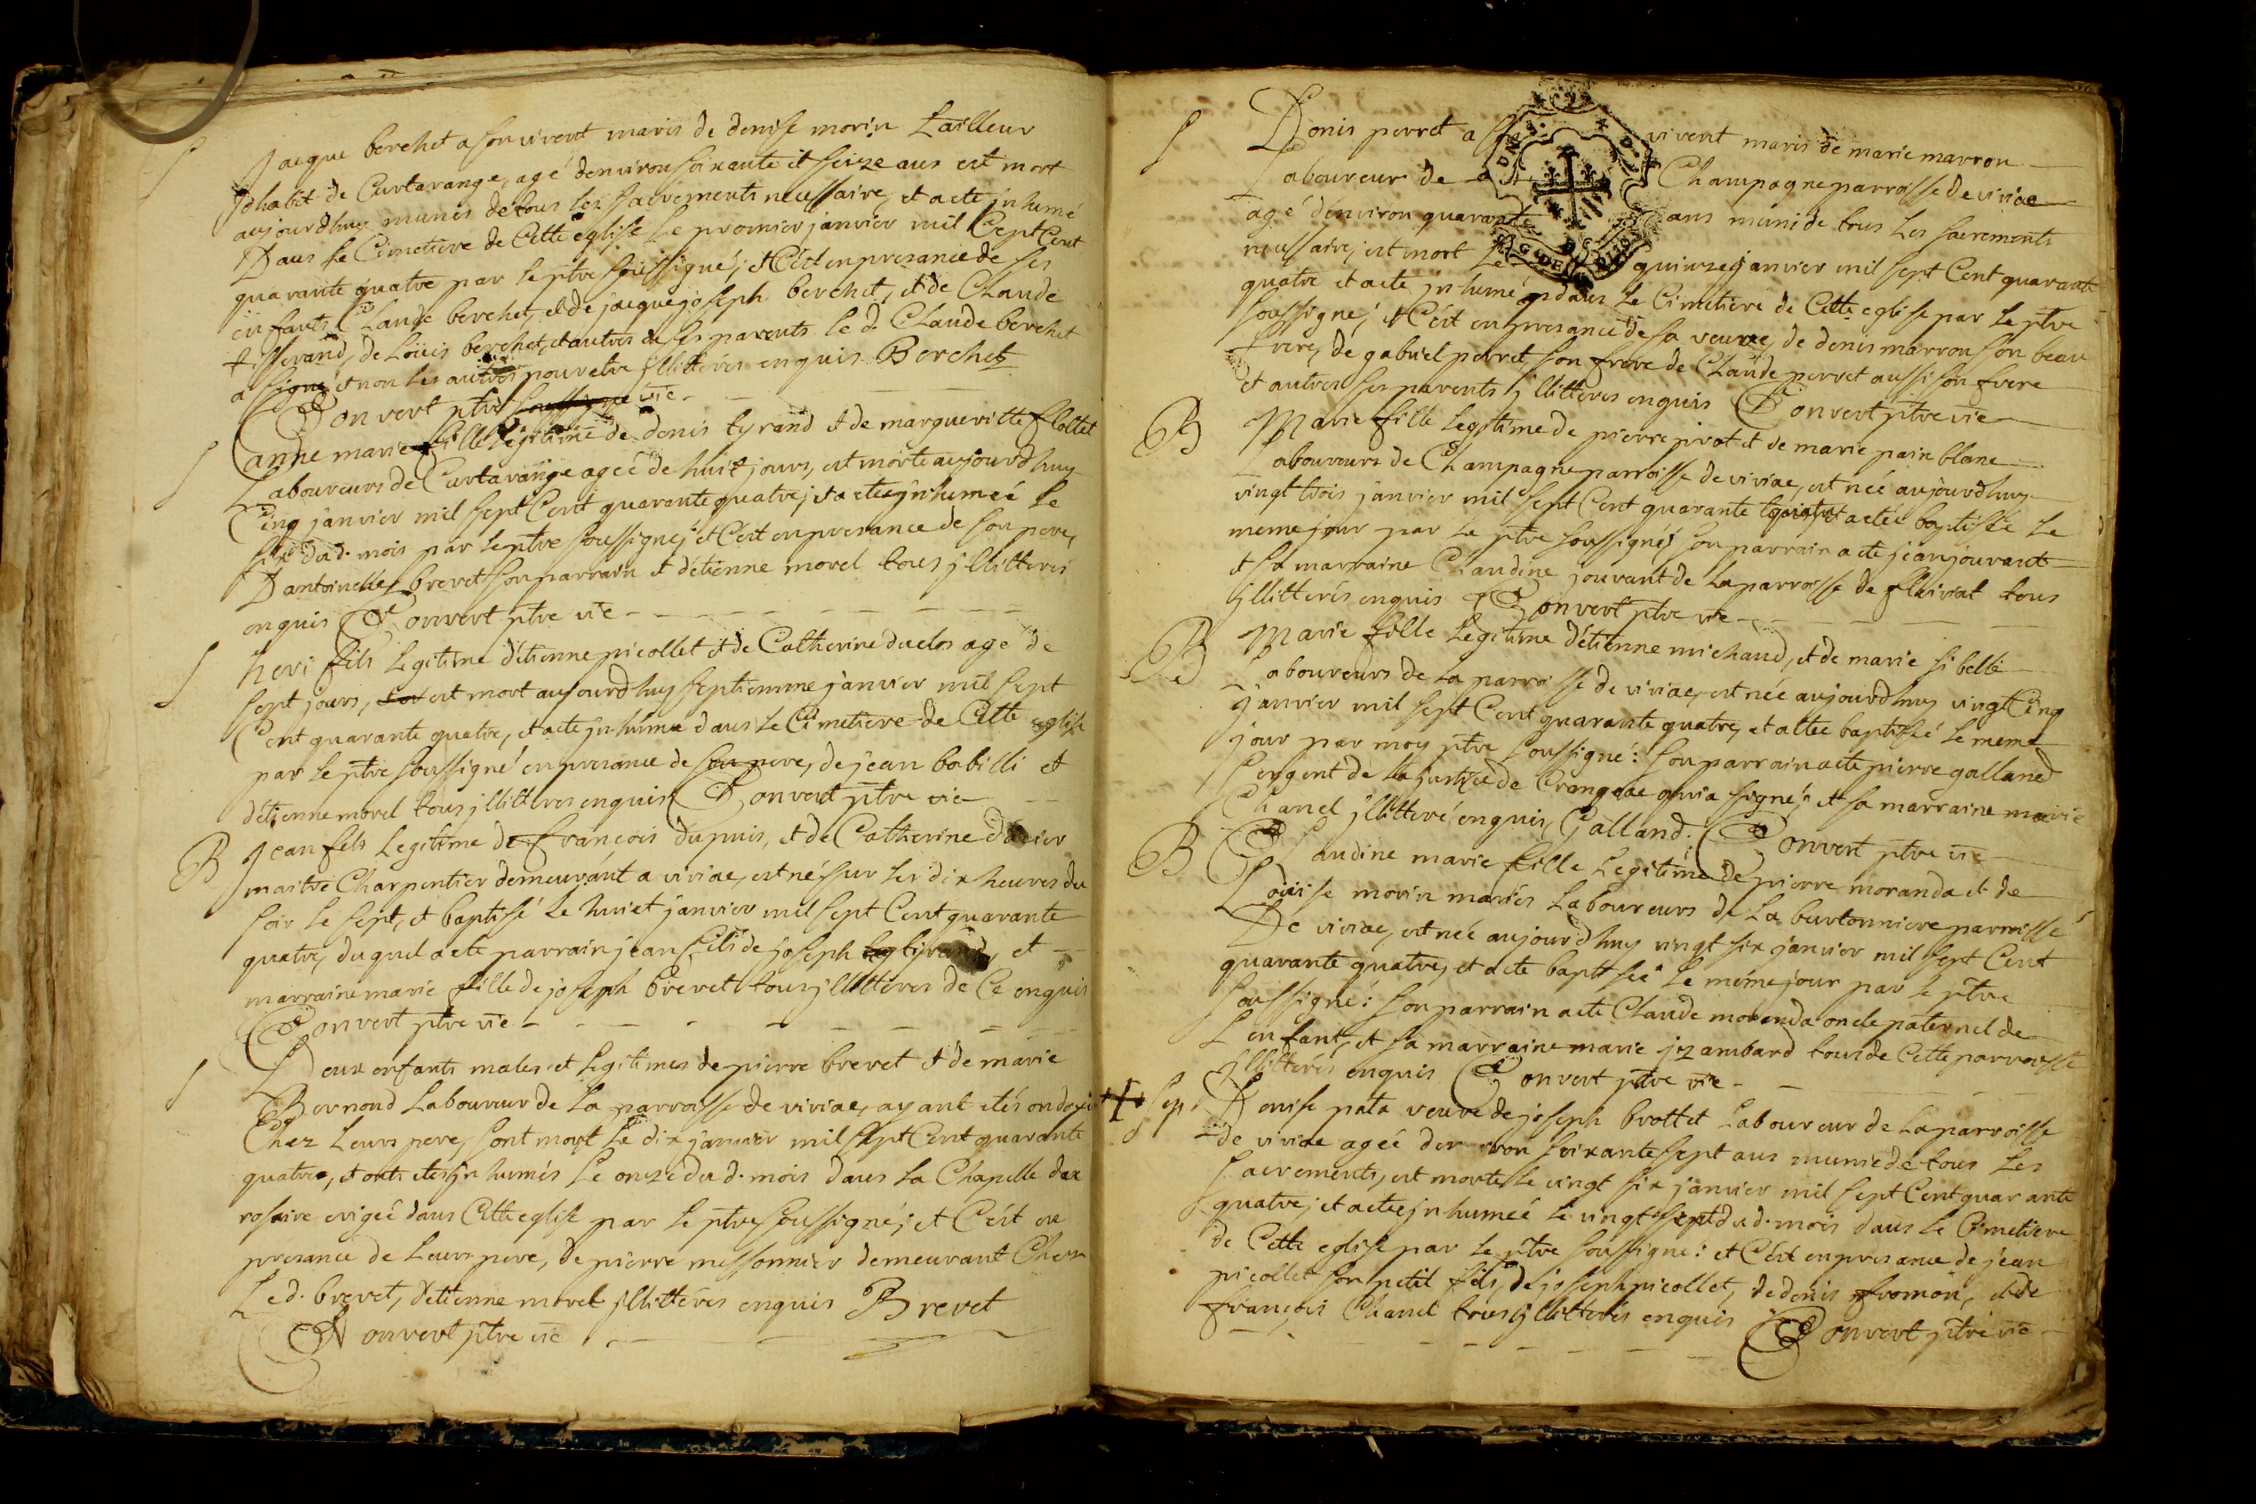 S
Jacque berchet a son vivent maris de denise morin tailleur
d'habit de Curtarange, agé denviron soixante et seize ans est mort
aujourdhuy munis de tous les sacrements necessaire, et a eté jnhumé
Dans le Cimetiere de Cette eglise Le premier janvier mil Sept Cent
quarante quatre par le ptre soussigné; et C'ést en presance de ses
enfants Claude berchet, et de jacque joseph berchet, et de Claude
tisserand, de Loüis berchet, et autres de ses parents le d. Claude berchet
a signé et non les autres pour etre jllitterés enquis Berchet
Convert ptre soussigné vic
S
anne marie fille legitime de denis tyrand et de margueritte flottet
Laboureurs de Curtarange ageé de huit jours, est morte aujourdhuy
Cinq janvier mil sept Cent quarante quatre; et a eteé jnhumeé Le
six du d. mois par le ptre soussigné; et C'ést en presance de son pere,
D'antoine brevet son parrain et d'étienne morel tous jllitterés
enquis Convert ptre vic
S
heri fils Legitime d'étienne picollet et de Catherine duclos agé de
sept jours, est mort aujourdhuy septiemme janvier mil sept
Cent quarante quatre, et a eté jnhumé dans Le Cimetiere de Cette eglise
par le ptre soussigné en presance de son pere, de jean babilli et
d'étienne morel tous jllitteres enquis Convert ptre vic
B
Jean fils Legitime de françois dupuis, et de Catherine
maitre Charpentier demeurant a viriac, est né sur les dix heures du
soir le sept, et baptisé Le huiet janvier mil sept Cent quarante
quatre, du quel a eté parrain jean fils de joseph et
marraine marie fille de joseph brevet tous jllitterés de Ce enquis
Convert ptre vic
S
Deux enfants males et Legitimes de pierre brevet et de marie
Bernond Laboureur de La parroisse de viriac, ayant etés ondoyé
Chez Leurs pere, sont mort Le dix janvier mil sept Cent quarante
quatre, et ont etés jnhumés Le onze du d. mois dans La Chapelle du
rosaire erigeé dans Cette eglise par Le ptre soussigné; et C'ést en
presance de Leurs pere, de pierre missonnier demeurant Chez
Le d. brevet, d'étienne morel jllitterés enquis Brevet
Convert ptre vic
S
Denis perret a son vivent maris de marie marron
Laboureur de Champagne parroisse de viriac
agé d'environ quarante ans muni de tous Les sacrements
necessaire, est mort Le quinze janvier mil sept Cent quarante
quatre et a eté jnhumé dans Le Cimetiere de Cette eglise par Le ptre
soussigné; et C'ést en presance de sa veuve, de denis marron son beau
frere, de gabriel perret son frere de Claude perret aussi son frere
et autres ses parents jllitterés enquis Convert ptre vic
B
Marie fille Legitime de pierre pirot et de marie pain blanc
Laboureurs de Champagne parroisse de viriac, est neé aujourdhuy
vingt trois janvier mil sept Cent quarante quatre, et a eteé baptiseé Le
meme jour par Le ptre soussigné; son parrain a eté jean jouvant
et sa marraine Claudine jouvant de La parroisse de fleiriat tous
jllitterés enquis Convert ptre vic
B
Marie fille Legitime d'étienne michaud, et de marie sibelle
Laboureurs de La parroisse de viriac, est neé aujourdhuy vingt Cinq
janvier mil sept Cent quarante quatre, et a eteé baptiseé Le meme
jour par moy ptre soussigné: son parrain a eté pierre galland
sergent de La justice de Crangeac qui a signé; et sa marraine marie
Chanel jllitteré enquis Galland. Convert ptre vic
B
Claudine marie fille Legitime de pierre moranda et de
Loüise morin mariés Laboureurs de La burtonniere parroisse
De viriac, est neé aujourdhuy vingt six janvier mil sept Cent
quarante quatre, et a eté baptiseé Le même jour par le ptre
soussigné: son parrain a eté Claude moranda oncle paternel de
L'enfant, et sa marraine marie jzambard tous de Cette parroisse
jllitterés enquis Convert ptre vic
Sep.
S
Denise pata veuve de joseph brottet Laboureur de La parroisse
de viriac ageé denviron soixante sept ans munie de tous Les
sacrements, est morte Le vingt six janvier mil sept Cent quarante
quatre; et a eteé jnhumeé Le vingt sept du d. mois dans Le Cimetiere
de Cette eglise par Le ptre soussigné: et C'ést en presance de jean
picollet son petit fils, de joseph picollet, de denis fromon, et de
françois Chanel tous jllitterés enquis Convert ptre vic